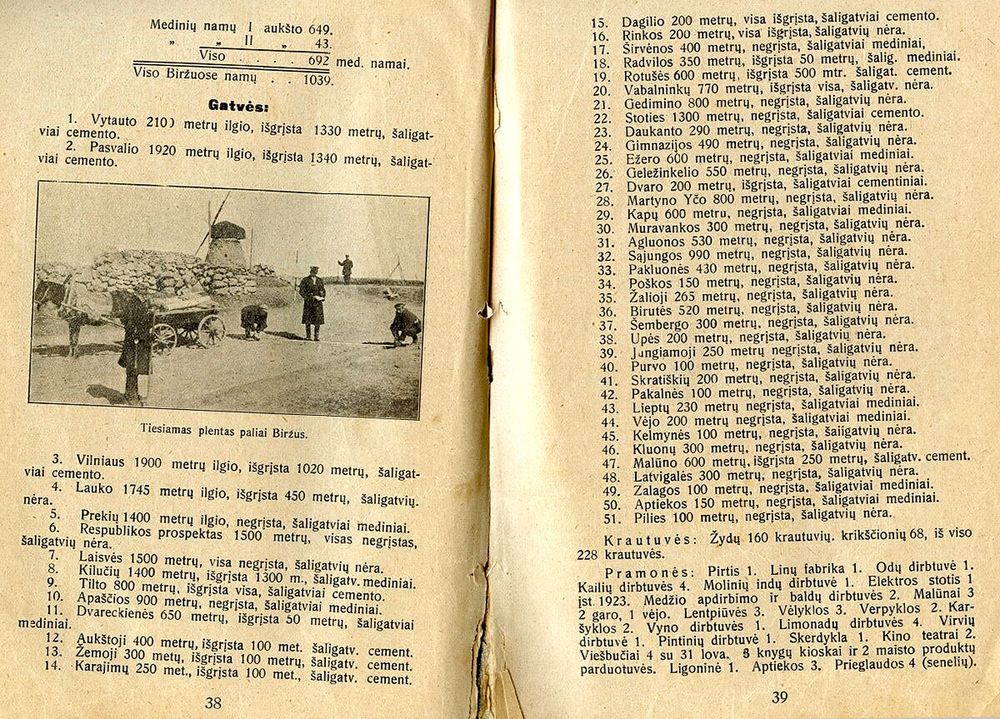 Medinių namų I aukšto 649.
„ „ II „ 43.
Viso . . . . 692 med. namai.
Viso Biržuose namų . . 1039.
Gatvės:
1. Vytauto 210) metrų ilgio, išgrįsta 1330 metrų, šaligat-
viai cemento.
2. Pasvalio 1920 metrų ilgio, išgrįsta 1340 metrų, šaligat-
viai cemento.
Tiesiamas plentas paliai Biržus.
3. Vilniaus 1900 metrų ilgio, išgrįsta 1020 metrų, šaligat-
viai cemento.
4. Lauko 1745 metrų ilgio, išgrįsta 450 metrų, šaligatvių.
nėra.
5. Prekių 1400 metrų ilgio, negrįsta, šaligatviai mediniai.
6. Respublikos prospektas 1500 metrų, visas negrįstas,
šaligatvių nėra.
7. Laisvės 1500 metrų, visa negrįsta, šaligatvių nėra.
8. Kilučių 1400 metrų, išgrįsta 1300 m., šaligatv. mediniai.
9. Tilto 800 metrų, išgrįsta visa, šaligatviai cemento.
10. Apaščios 900 metrų, negrįsta, šaligatviai mediniai.
11. Dvareckienės 650 metrų, išgrįsta 50 metrų, šaligatviai
mediniai.
12. Aukštoji 400 metrų, išgrįsta 100 met. šaligatv. cement.
13. Žemoji 300 metų, išgrįsta 100 metrų, šaligatv. cement.
14. Karajimų 250 met., išgrįsta 100 met., šaligatv. cement.
38
15. Dagilio 200 metrų, visa išgrįsta, šaligatviai cemento.
16. Rinkos 200 metrų, visa išgrįsta, šaligatvių nėra.
17. Širvėnos 400 metrų, negrįsta, šaligatviai mediniai,
18. Radvilos 350 metrų, išgrįsta 50 metrų, šalig. mediniai.
19. Rotušės 600 metrų, išgrįsta 500 mtr. šaligat. cement.
20. Vabalninkų 770 metrų, išgrįsta visa, šaligatv. nėra.
21. Gedimino 800 metrų, negrįsta, šaligatvių nėra.
22. Stoties 1300 metrų, negrįsta, šaligatviai cemento.
23. Daukanto 290 metrų, negrįsta, šaligatvių nėra.
24. Gimnazijos 490 metrų, negrįsta, šaligatvių nėra.
25. Ežero 600 metrų, negrįsta, šaligatviai mediniai.
26. Geležinkelio 550 metrų, negrįsta, šaligatvių nėra.
27. Dvaro 200 metrų, išgrįsta, šaligatviai cementiniai.
28. Martyno Yčo 800 metrų, negrįsta, šaligatvių nėra.
29. Kapų 600 metru, negrįsta, šaligatviai mediniai.
30. Muravankos 300 metrų, negrįsta, šaligatvių nėra.
31. Agluonos 530 metrų, negrįsta, šaligatvių nėra.
32. Sąjungos 990 metrų, negrįsta, šaligatvių nėra.
33. Pakluonės 430 metrų, negrįsta, šaligatvių nėra.
34. Poškos 150 metrų, negrįsta, šaligatvių nėra.
35. Žalioji 265 metrų, negrįsta, šaligatvių nėra.
36. Birutės 520 metrų, negrįsta, šaligatvių nėra.
37. Šembergo 300 metrų, negrįsta, šaligatvių nėra.
38. Upės 200 metrų, negrįsta, šaligatvių nėra.
39. Jungiamoji 250 metrų, negrįsta, šaligatvių nėra.
40. Purvo 100 metrų, negrįsta, šaligatvių nėra.
41. Skratiškių 200 metrų, negrįsta, šaligatvių nėra.
42. Pakalnės 100 metrų, negrįsta, šaligatvių nėra.
43. Lieptų 230 metrų, negrįsta, šaligatviai mediniai.
44. Vėjo 200 metrų, negrįsta, šaligatviai mediniai.
45. Kelmynės 100 metrų, negrįsta, šaiigatvių nėra.
46. Kluonų 300 metrų, negrįsta, šaligatvių nėra.
47. Malūno 600 metrų, išgrįsta 250 metrų, šaligatv. cement.
48. Latvigalės 300 metrų, negrįsta, šaligatvių nėra.
49. Zalagos 100 metrų, negrįsta, šaligatviai mediniai.
50. Aptiekos 150 metrų, negrįsta, šaligatviai mediniai.
51. Pilies 100 metrų, negrįsta, šaligatvių nėra.
Krautuvės: Žydų 160 krautuvių. krikščionių 68, iš viso
228 krautuvės.
Pramonės: Pirtis 1. Linų fabrika 1. Odų dirbtuvė 1.
Kailių dirbtuvės 4. Molinių indų dirbtuvė 1. Elektros stotis 1
įst. 1923. Medžio apdirbimo ir baldų dirbtuvės 2. Malūnai 3
2 garo, 1 vėjo. Lentpiūvės 3. Vėlyklos 3. Verpyklos 2. Kar-
šyklos 2. Vyno dirbtuvės 1. Limonadų dirbtuvės 4. Virvių
dirbtuvė 1. Pintinių dirbtuvė 1. Skerdykla 1. Kino teatrai 2.
Viešbučiai 4 su 31 lova. 8 knygų kioskai ir 2 maisto produktų
parduotuvės. Ligoninė 1. Aptiekos 3. Prieglaudos 4 (senelių).
39